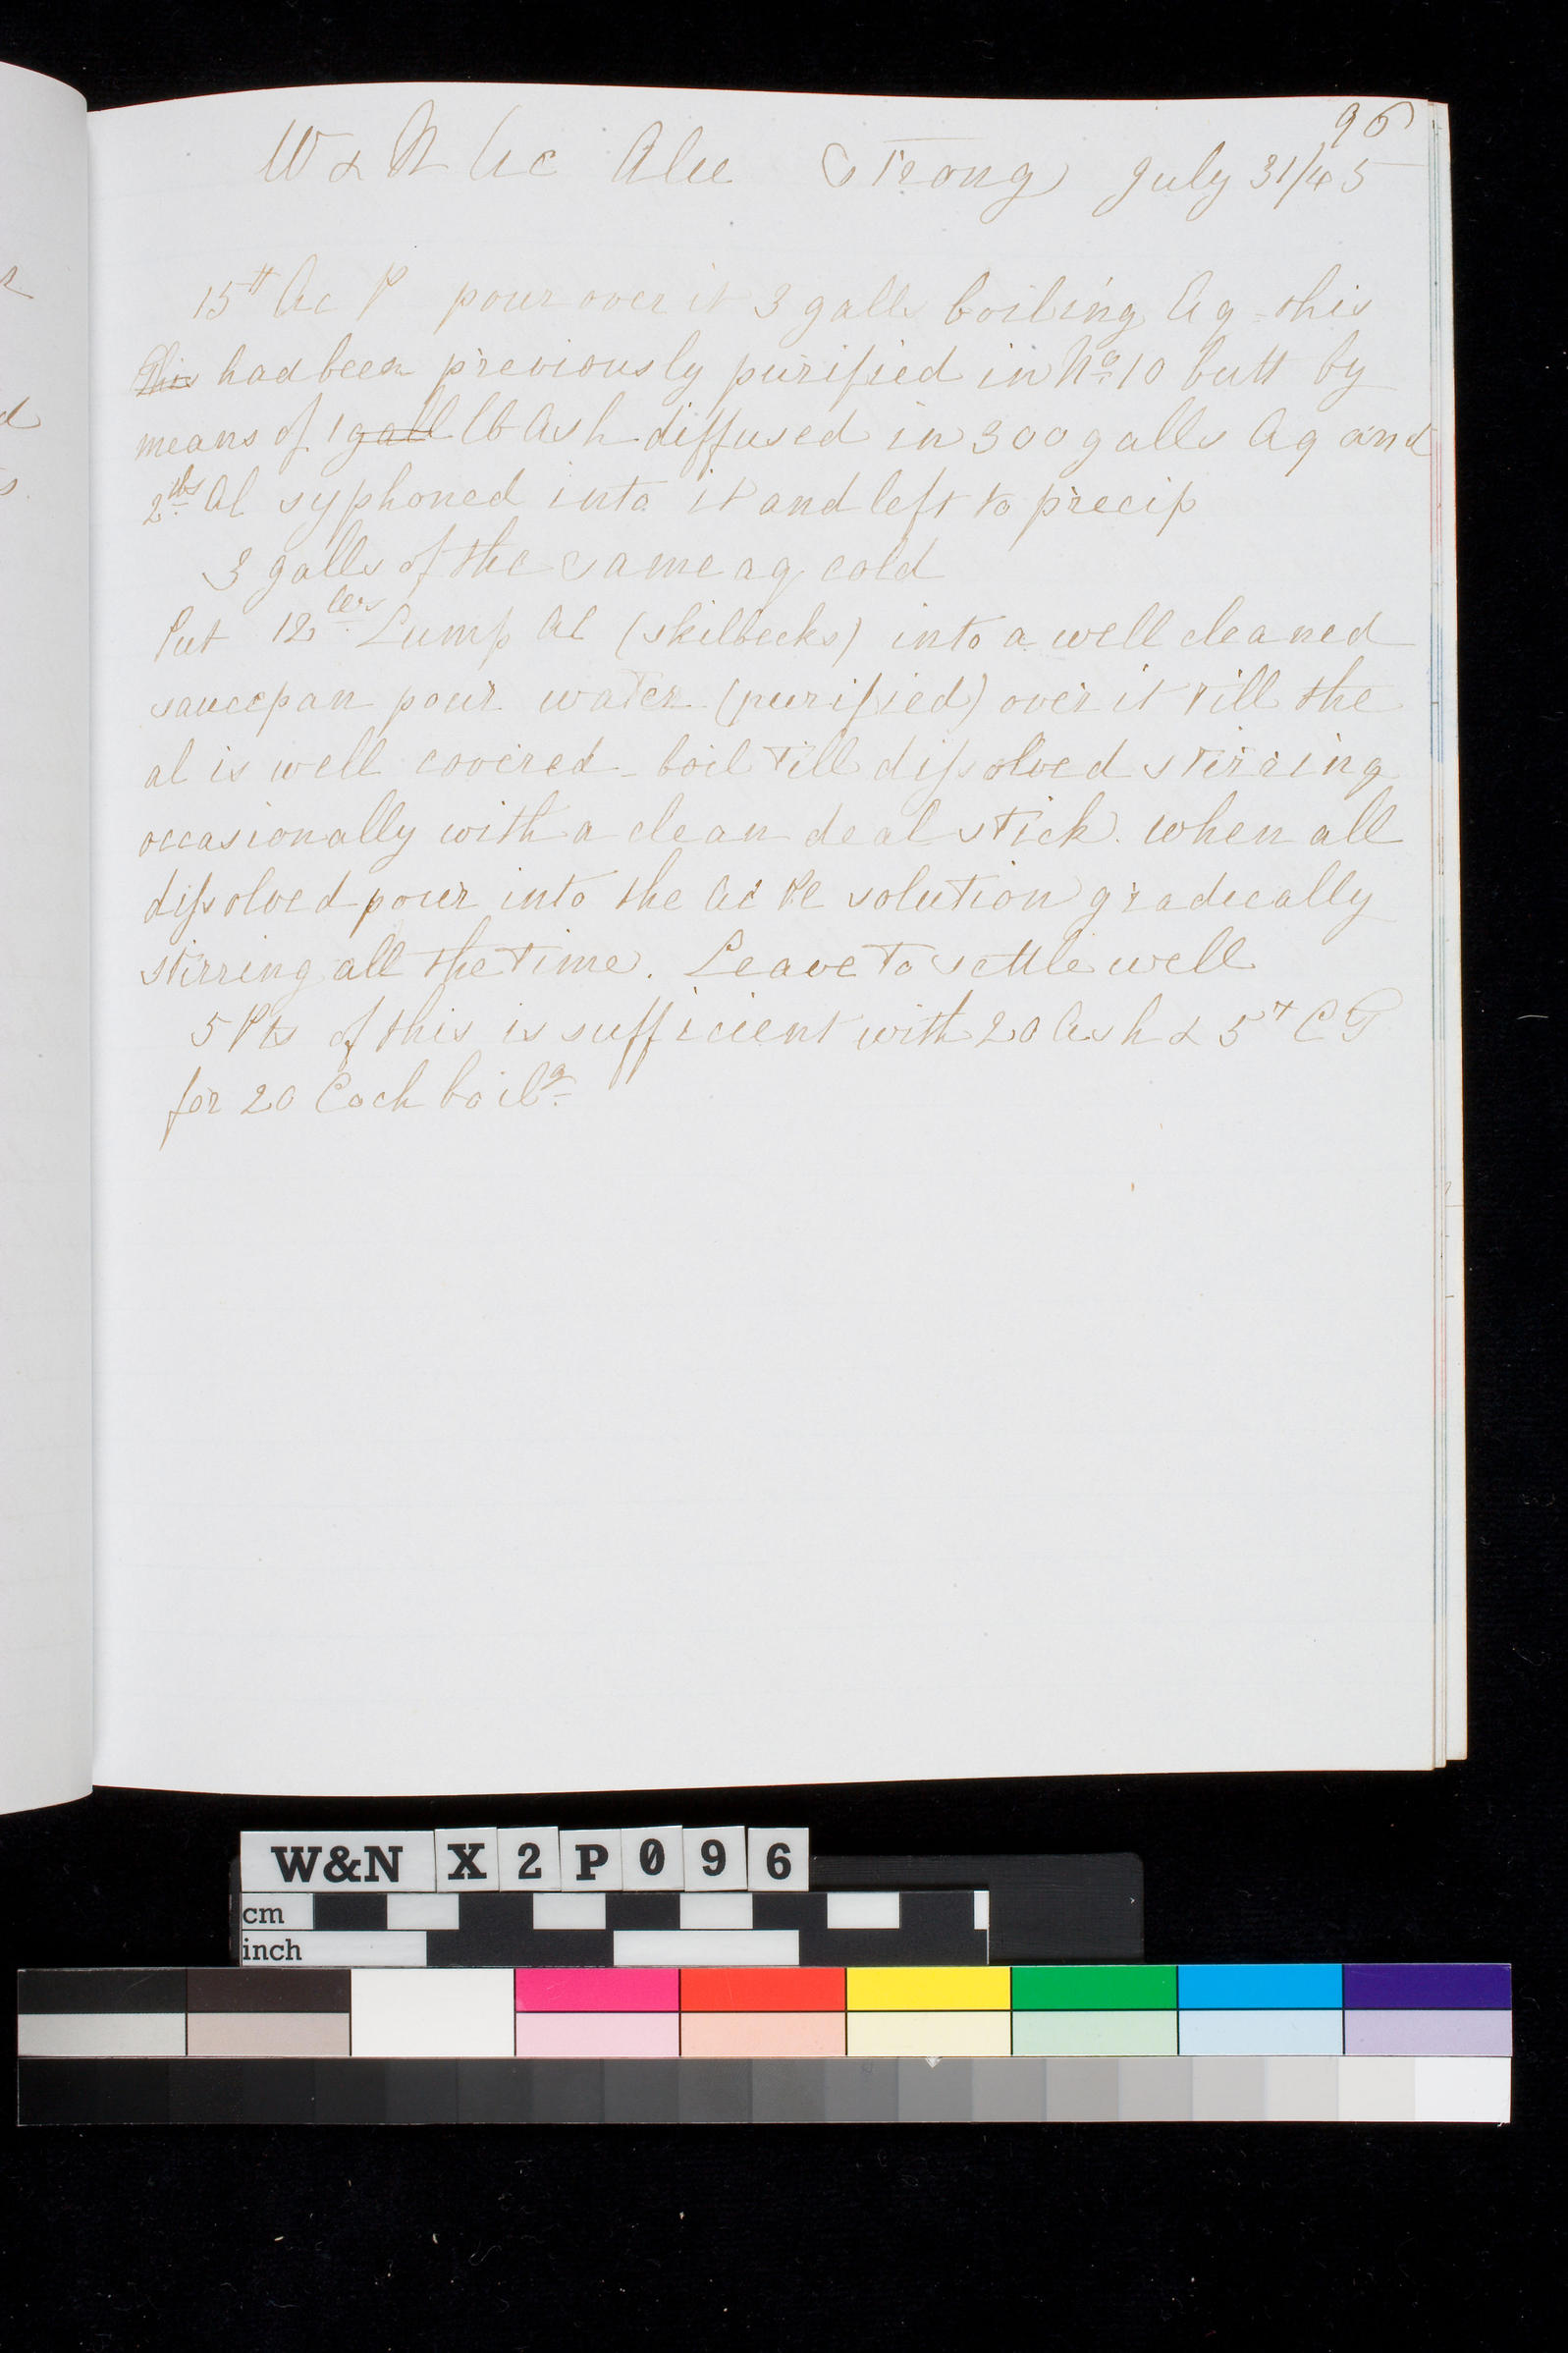 96
W & N Ac Alu Strong July 31/45
15 ℔ Ac P pour over it 3 galls boiling Aq - this
This had been previously purified in No 10 butt by
means of 1 gall lb Ash diffused in 300 galls Aq and
2 lbs Al syphoned into it and left to precip
3 galls of the same aq cold
Put 12 lbs Lump Al (skilbecks) into a well cleaned
saucepan pour water (purified) over it till the
al is well covered - boil till dissolved stirring
occasionally with a clean deal stick. when all
dissolved pour into the Ac Pl solution gradually
stirring all the time. Leave to settle well
5 Pts of this is sufficient with 20 Ash & 5 ℔ C T
for 20 Coch boilg
W&N X 2 P 0 9 6
cm
inch